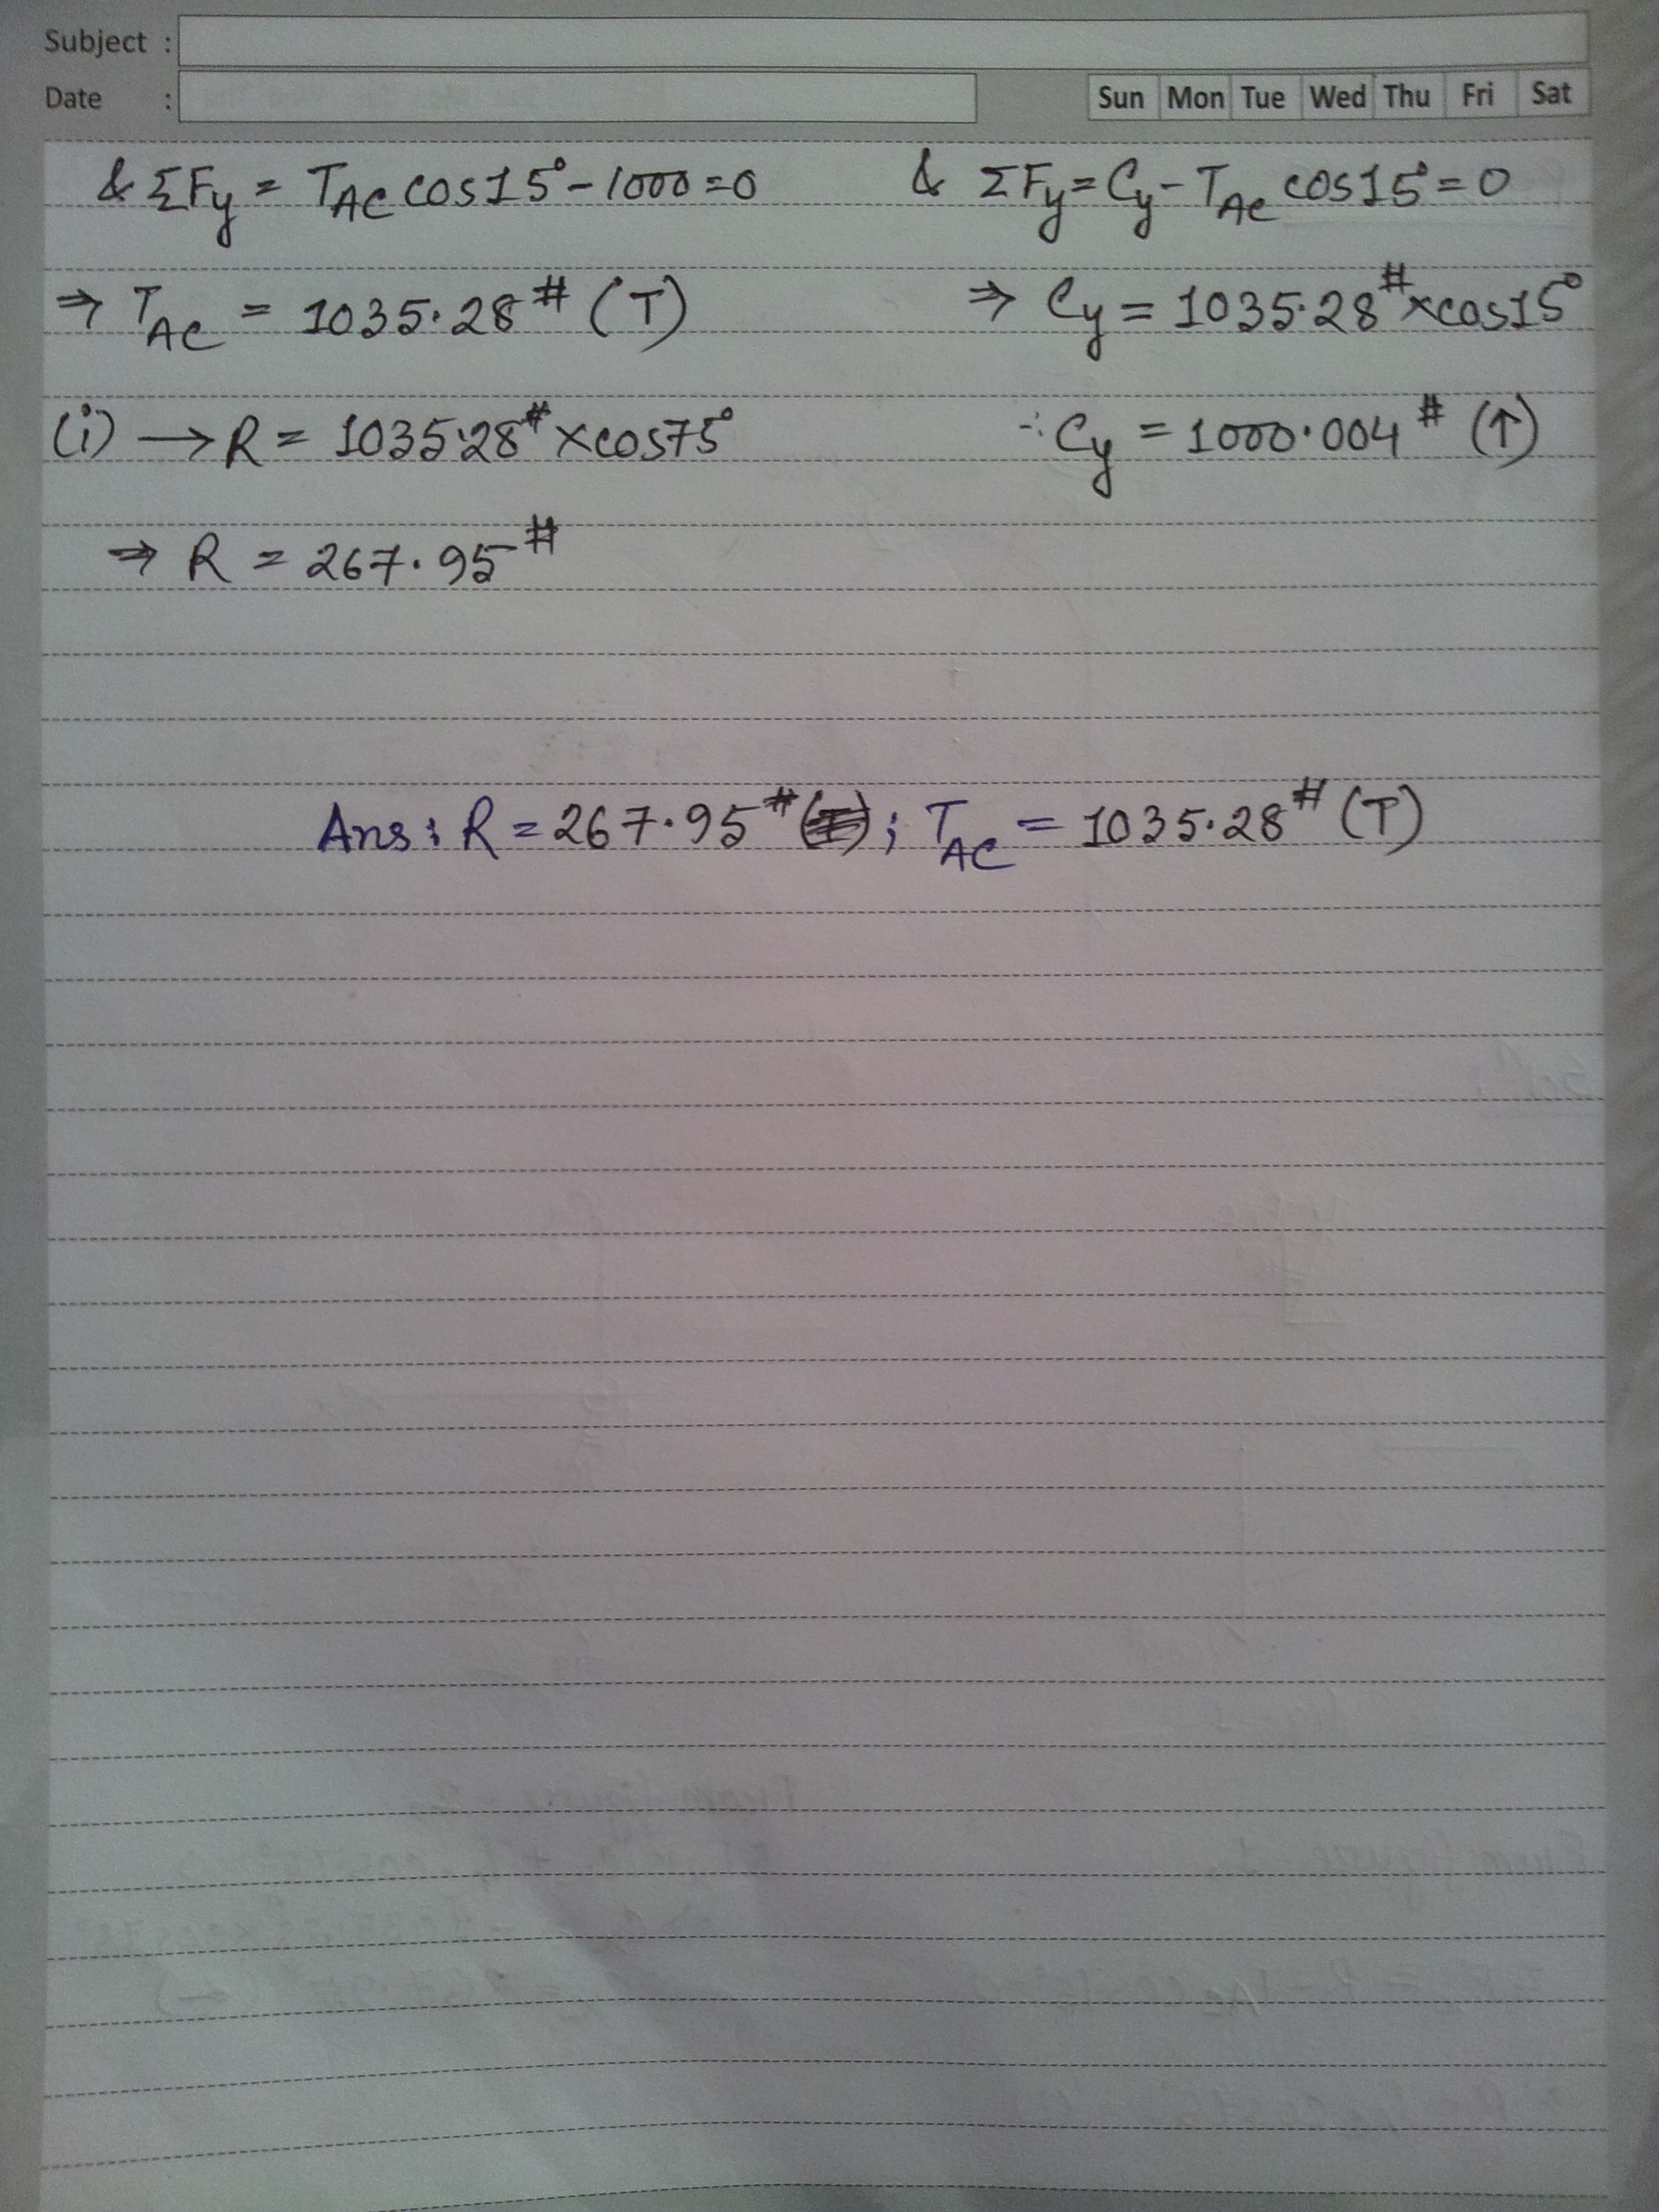 Subject :
Date :
Sun Mon Tue Wed Thu Fri Sat
& ΣFy = T_AC cos15° - 1000 = 0
⇒ T_AC = 1035.28# (T)
(i) → R = 1035.28# × cos75°
⇒ R = 267.95#
& ΣFy = Cy - T_AC cos15° = 0
⇒ Cy = 1035.28# × cos15°
∴ Cy = 1000.004# (↑)
Ans: R = 267.95# ; T_AC = 1035.28# (T)